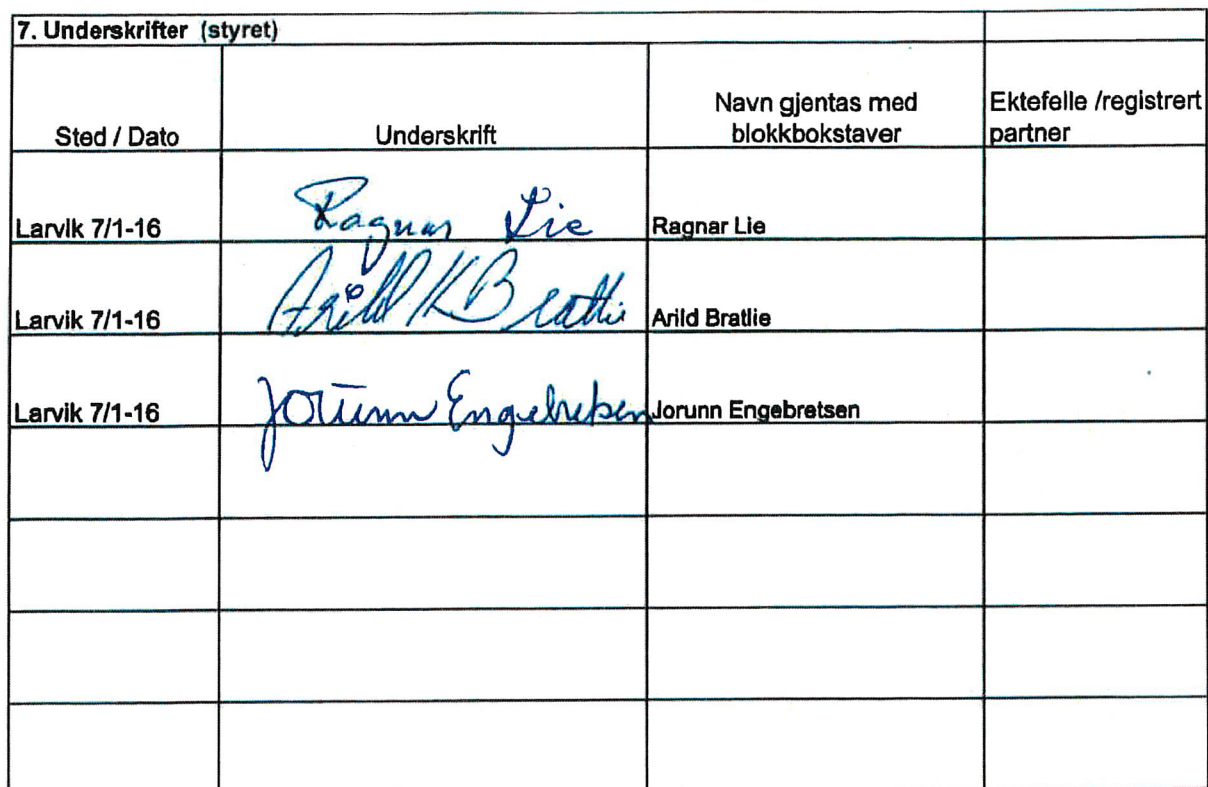 7. Underskrifter (styret)
Sted / Dato
Underskrift
Navn gjentas med
blokkbokstaver
Ektefelle /registrert
partner
Larvik 7/1-16
Ragnar Lie
Ragnar Lie
Larvik 7/1-16
Arild K Bratlie
Arild Bratlie
Larvik 7/1-16
Jorunn Engebretsen
Jorunn Engebretsen